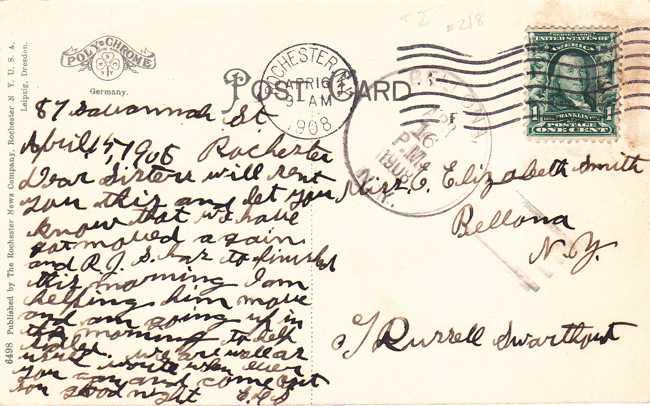 POLY-CHROME
Germany.
6498 Published by The Rochester News Company, Rochester N. Y. U. S. A.
Leipzig, Dresden.
POST CARD
ROCHESTER, N.Y.
APR 16
9 AM
1908
BELLONA
APR
16
P M
1908
N.Y.
F
SERIES 1902
UNITED STATES OF
AMERICA
FRANKLIN
1 1
POSTAGE
ONE CENT
# 218
87 Savannah St
April 15, 1908 Rochester
Dear Sister will
you this and let you
know that we have
got moved again
and R.J. S. has to finished
this morning I am
helping him move
and am going up in
the morning to help
we are well as
write when ever
you can and come out
good night
Miss. C. Elizabeth Smith
Bellona
N.Y.
C/ Russell Swarthout